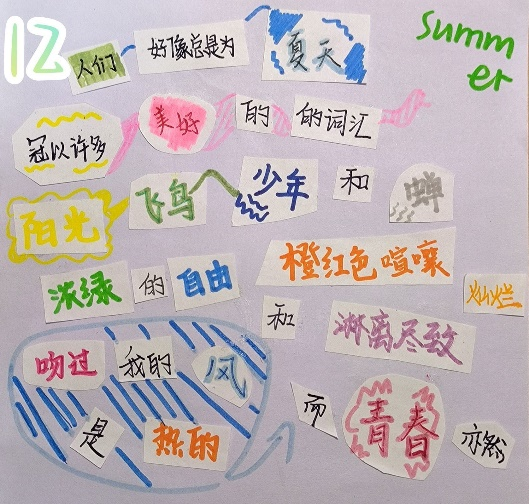 12
人们 好像总是为 夏天
summer
冠以许多 美好 的 的词汇
阳光 飞鸟 少年 和 蝉
浓绿 的 自由 橙红色喧嚷 灿烂
和 淋离尽致
吻过 我的 风
是 热的
而 青春 亦然